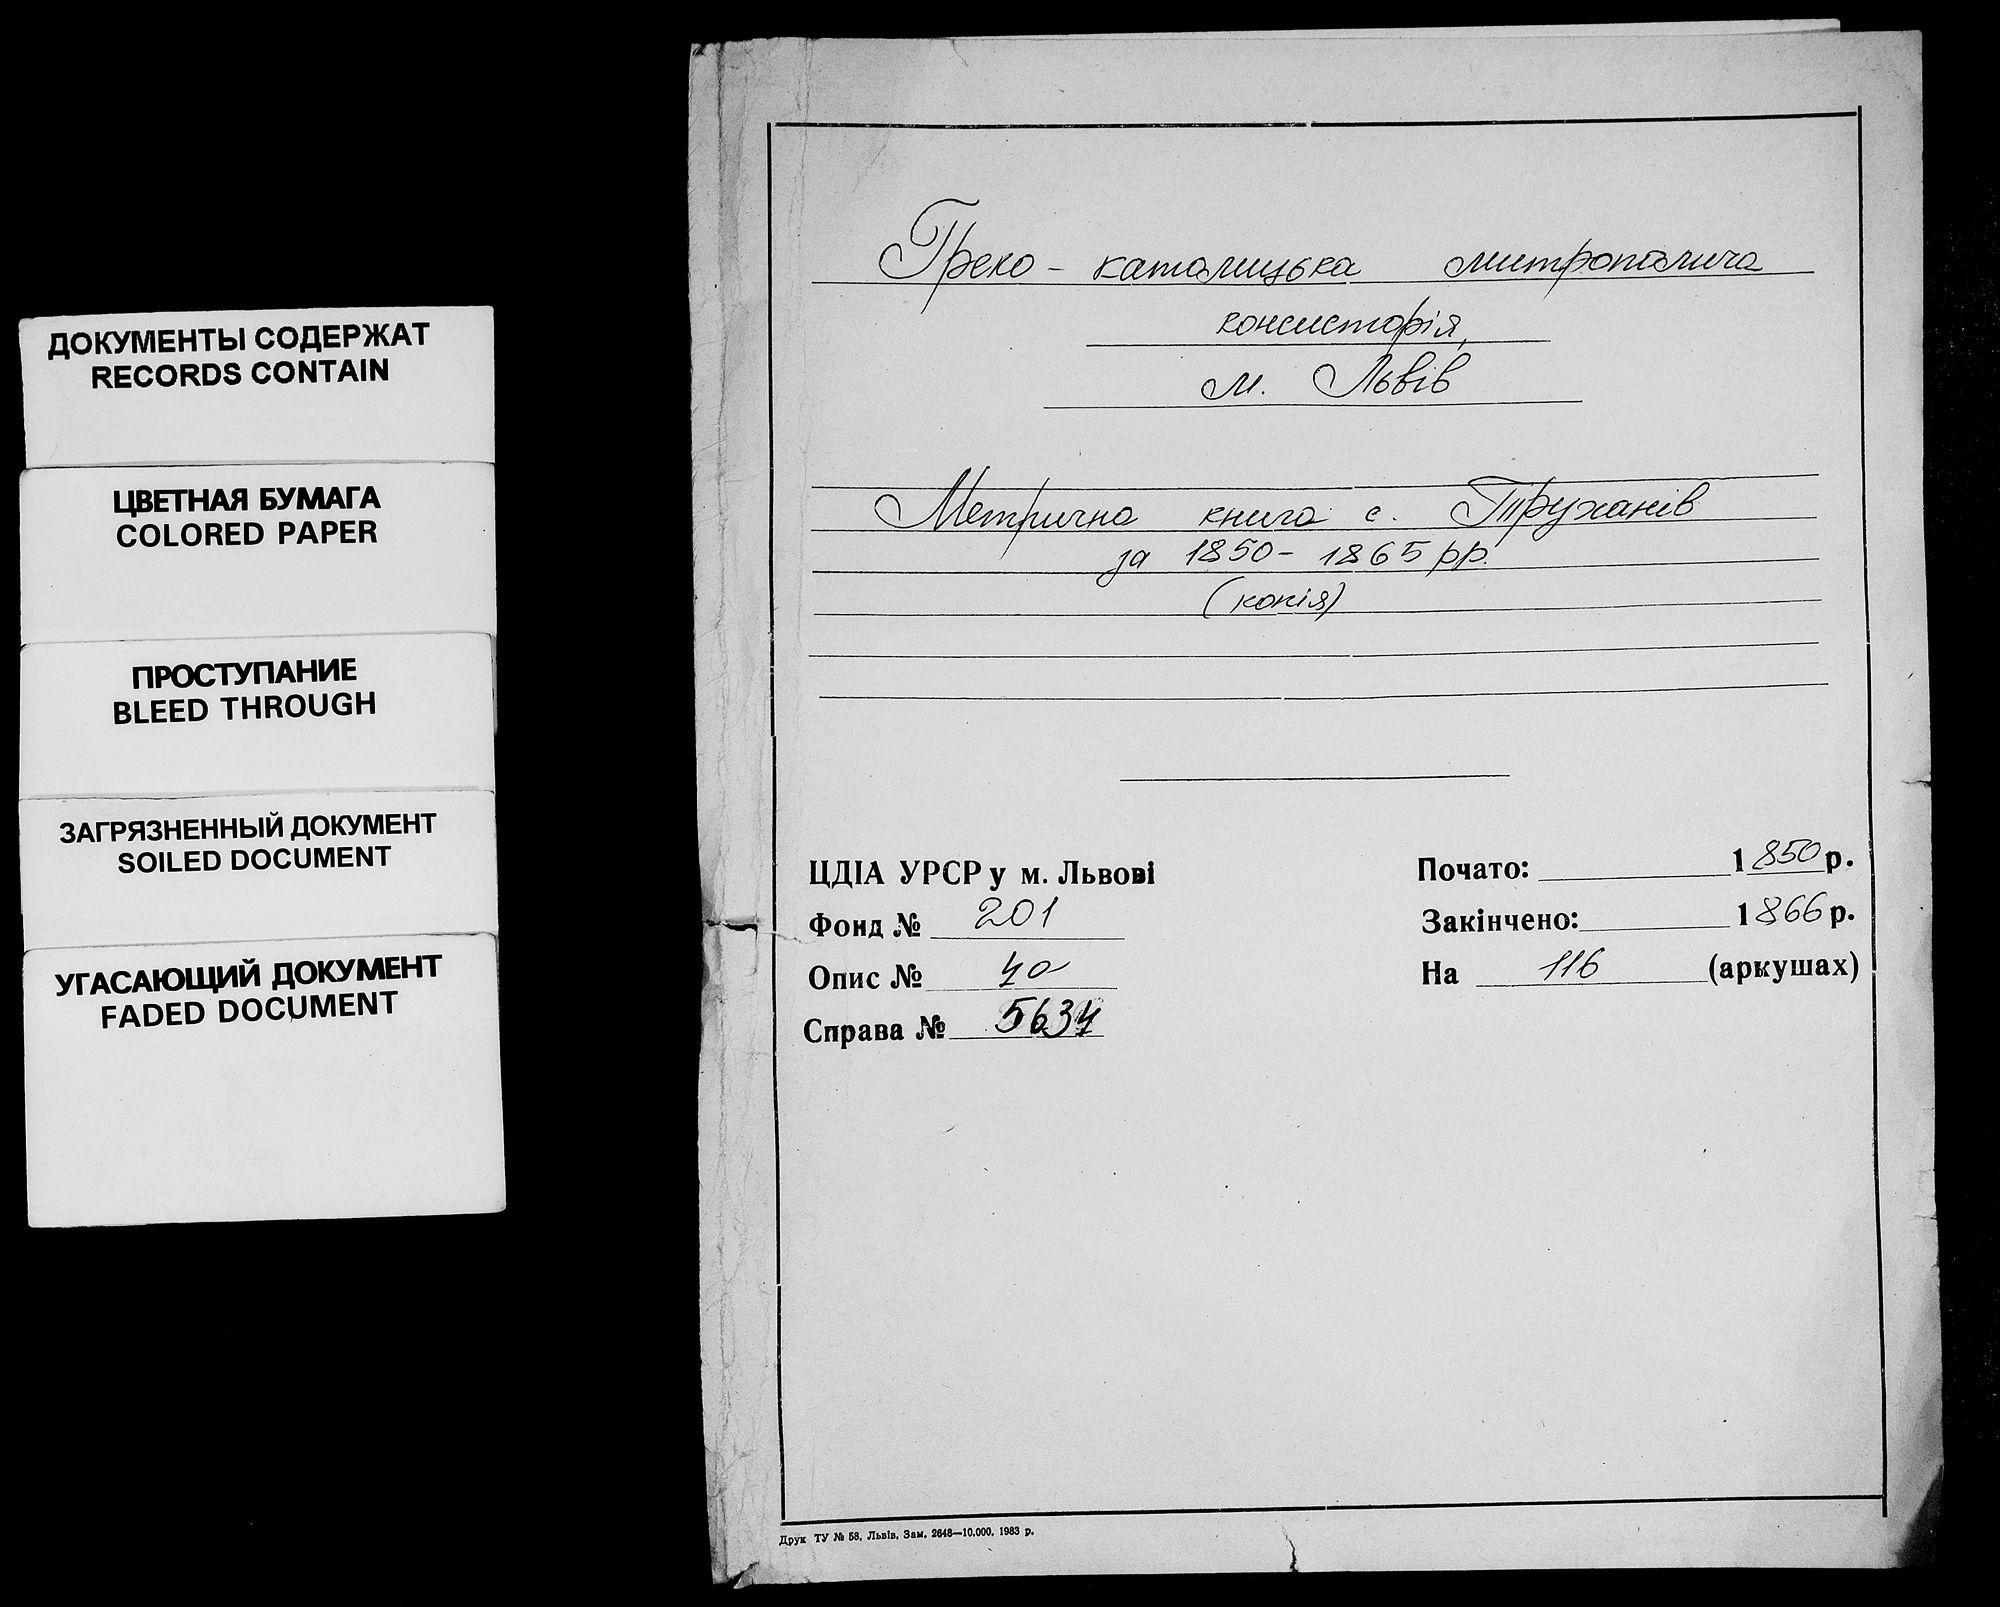 ДОКУМЕНТЫ СОДЕРЖАТ
RECORDS CONTAIN
ЦВЕТНАЯ БУМАГА
COLORED PAPER
ПРОСТУПАНИЕ
BLEED THROUGH
ЗАГРЯЗНЕННЫЙ ДОКУМЕНТ
SOILED DOCUMENT
УГАСАЮЩИЙ ДОКУМЕНТ
FADED DOCUMENT
Греко - католицька митрополича
консисторія,
м. Львів
Метрична книга с. Труханів
за 1850 - 1865 рр.
(копія)
ЦДІА УРСР у м. Львові
Фонд № 201
Опис № 4а
Справа № 5634
Почато: 1850 р.
Закінчено: 1866 р.
На 116 (аркушах)
Друк ТУ № 58, Львів, Зам. 2648—10.000, 1983 р.